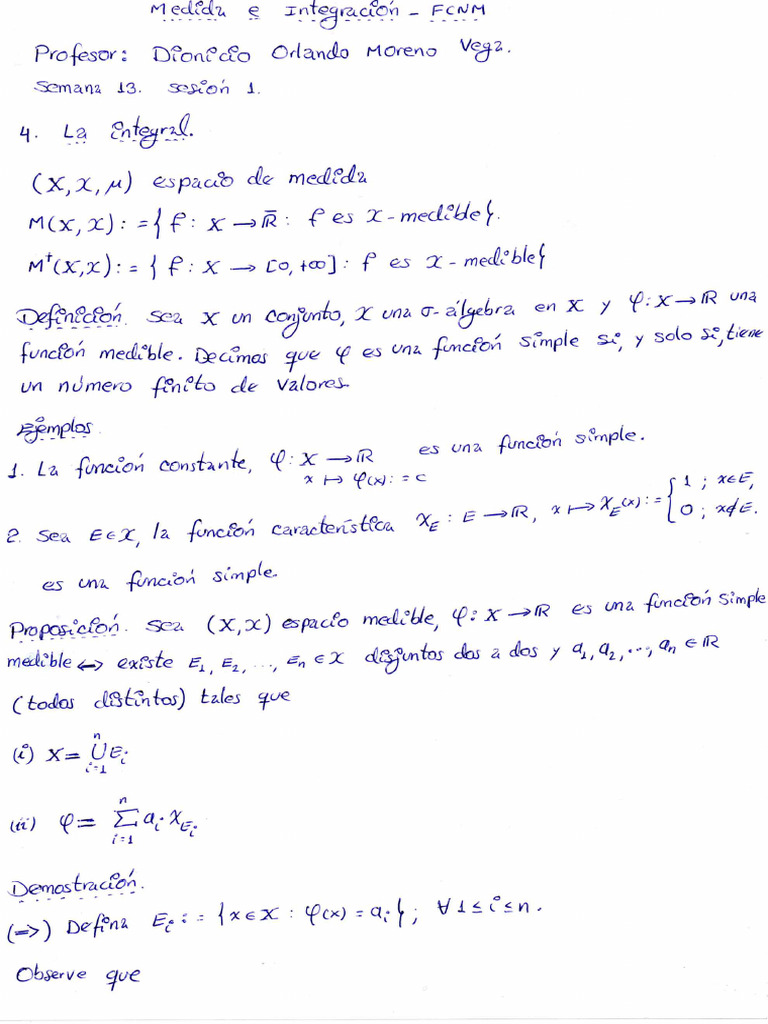 Medida e Integración - FCNM
Profesor: Dionicio Orlando Moreno Vega.
Semana 13. Sesión 1.
4. La integral.
(X, 𝒳, μ) espacio de medida
M(X, 𝒳) := { f : X → ℝ̄ : f es 𝒳-medible }.
M⁺(X, 𝒳) := { f : X → [0, +∞] : f es 𝒳-medible }
Definición. Sea X un conjunto, 𝒳 una σ-álgebra en X y φ: X → ℝ una
función medible. Decimos que φ es una función simple si, y solo si, tiene
un número finito de valores.
Ejemplos.
1. La función constante, φ: X → ℝ es una función simple.
x ↦ φ(x) := c
2. Sea E ∈ 𝒳, la función característica χ_E : E → ℝ, x ↦ χ_E(x) := { 1 ; x ∈ E, 0 ; x ∉ E.
es una función simple.
Proposición. Sea (X, 𝒳) espacio medible, φ: X → ℝ es una función simple
medible ↔ existe E₁, E₂, ..., Eₙ ∈ 𝒳 disjuntos dos a dos y a₁, a₂, ..., aₙ ∈ ℝ
(todos distintos) tales que
(i) X = ⋃_{i=1}^{n} E_i
(ii) φ = ∑_{i=1}^{n} a_i χ_{E_i}
Demostración.
(=>) Defina E_i := { x ∈ X : φ(x) = a_i } ; ∀ 1 ≤ i ≤ n.
Observe que